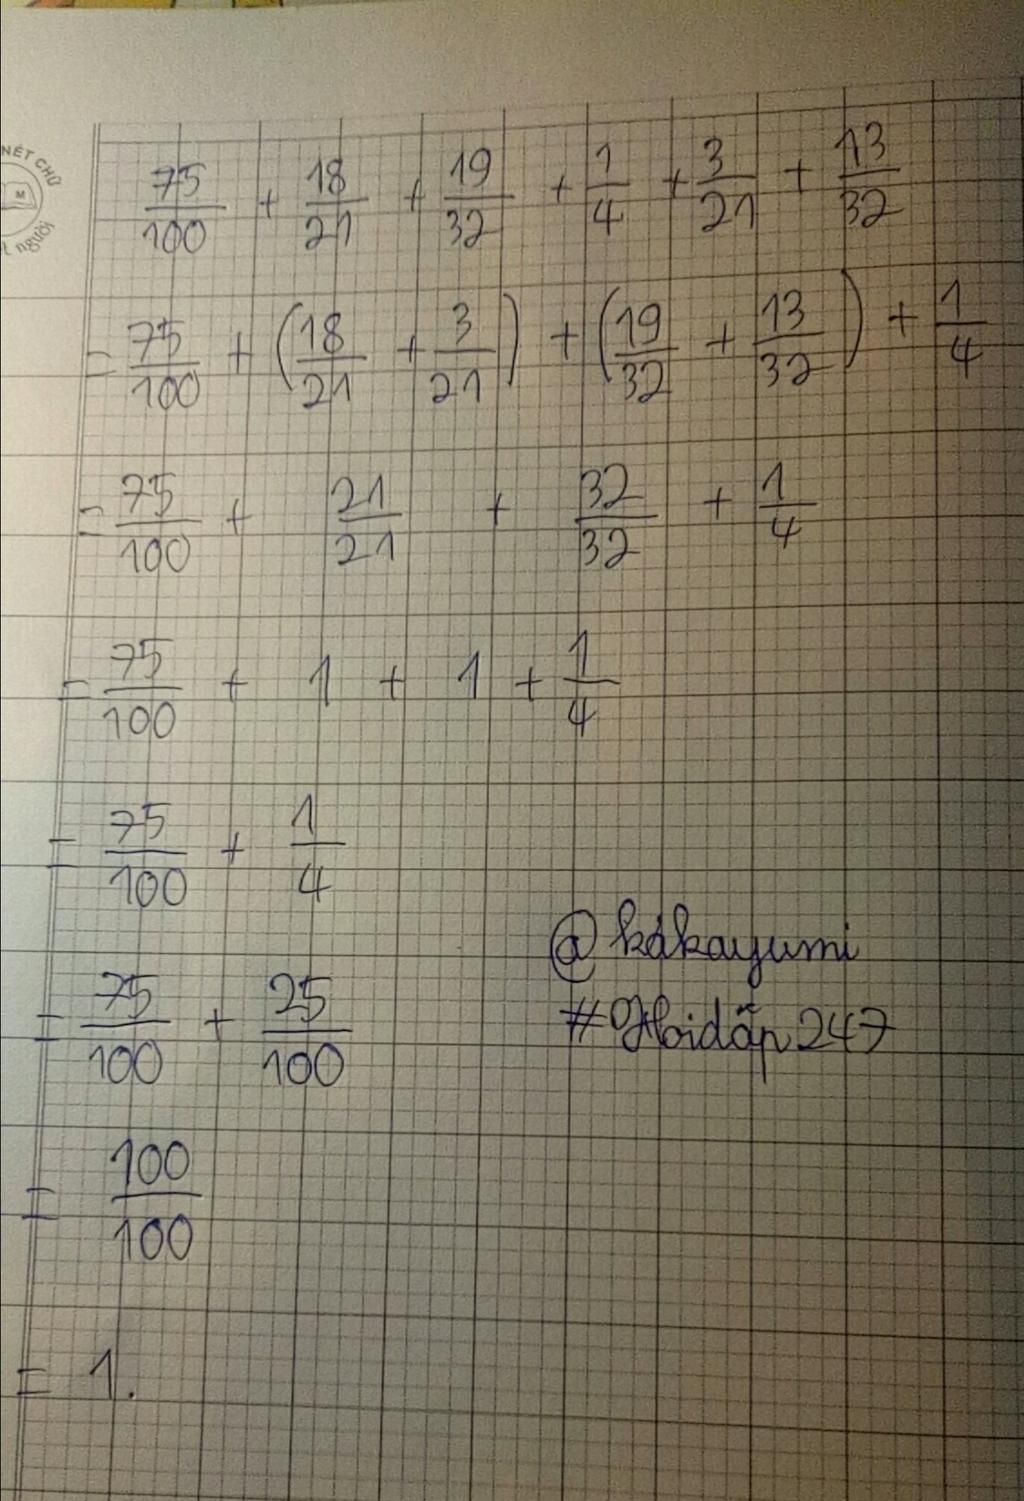 NÉT CHỮ
M
người
75/100 + 18/21 + 19/32 + 1/4 + 3/21 + 13/32
= 75/100 + (18/21 + 3/21) + (19/32 + 13/32) + 1/4
= 75/100 + 21/21 + 32/32 + 1/4
= 75/100 + 1 + 1 + 1/4
= 75/100 + 1/4
= 75/100 + 25/100
= 100/100
= 1.
@kákayumi
#Hoidấp247